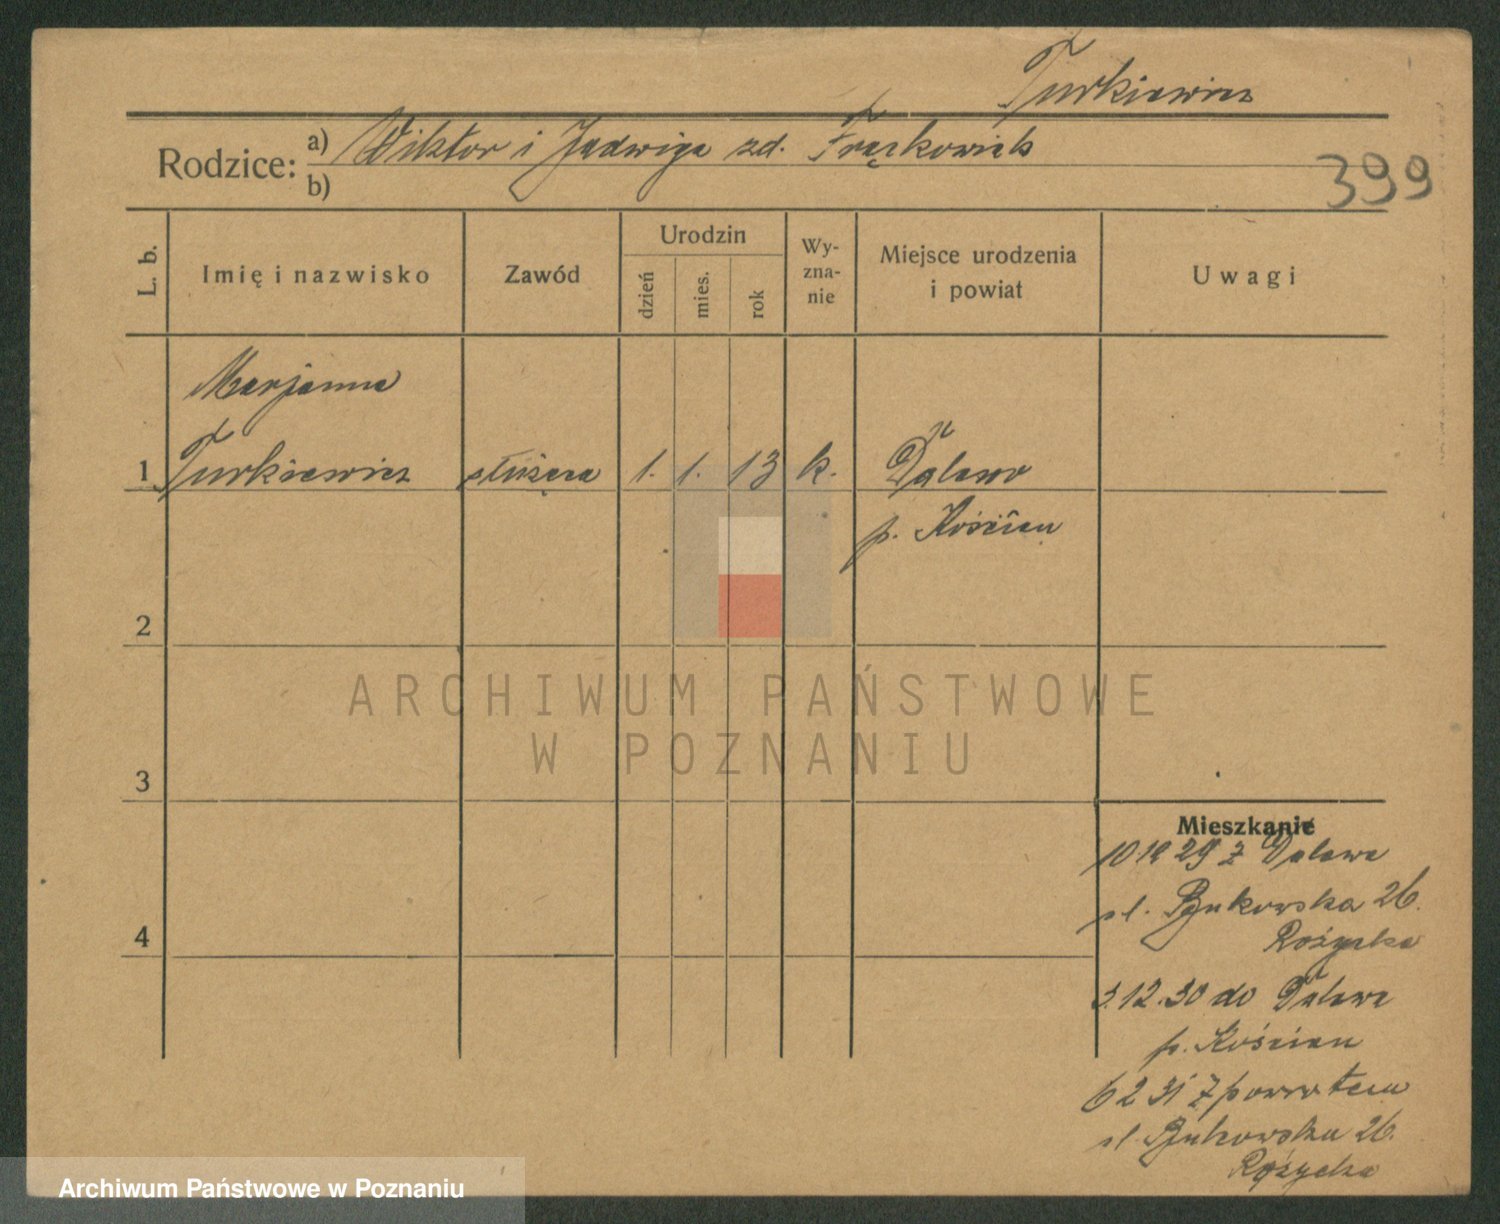 Turkiewicz
Rodzice: a) Wiktor i Jadwiga zd. Frąckowiak
b)
399
L. b.
Imię i nazwisko
Zawód
Urodzin
dzień
mies.
rok
Wy-
zna-
nie
Miejsce urodzenia
i powiat
Uwagi
Marjanna
1 Turkiewicz służąca 1. 1. 13 k. Dalewo
p. Kościan
2
3
4
ARCHIWUM PAŃSTWOWE
W POZNANIU
Mieszkanie
29 z Dalewa
sł. Bukowska 26.
Różycka
3.12.30 do Dalewa
p. Kościan
6 2 31 z powrotem
sł. Bukowska 26.
Różycka
Archiwum Państwowe w Poznaniu